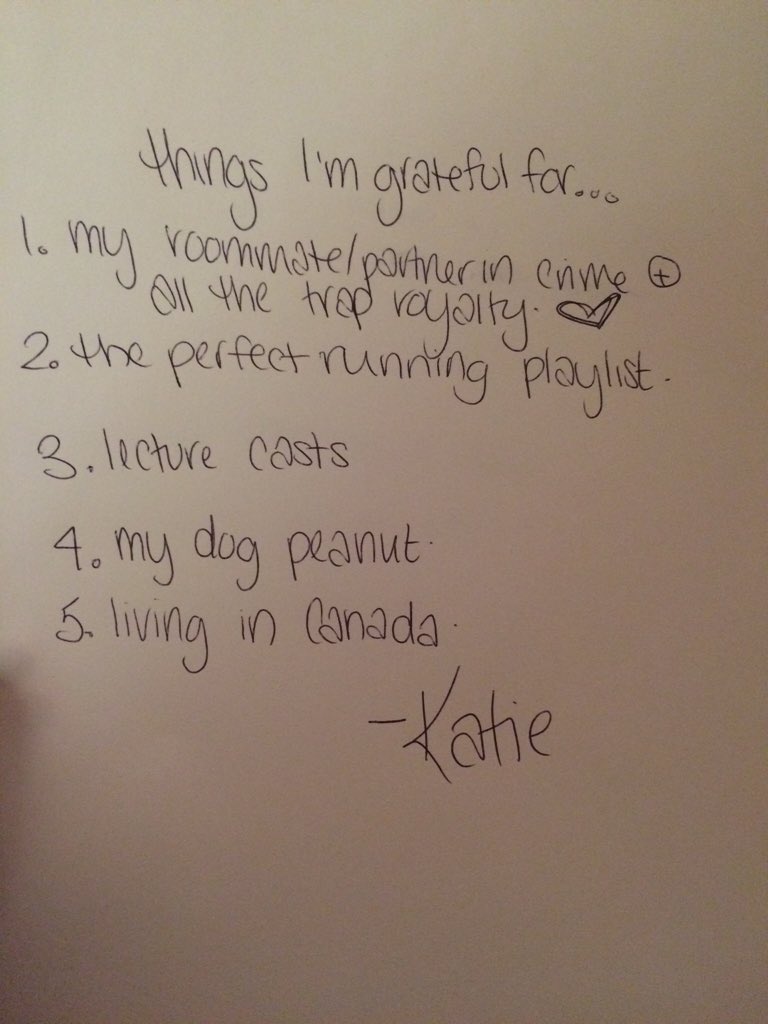 things I'm grateful for...
1. my roommate/partner in crime ⊕
all the trap royalty. ♡
2. the perfect running playlist.
3. lecture casts
4. my dog peanut.
5. living in Canada.
-Katie